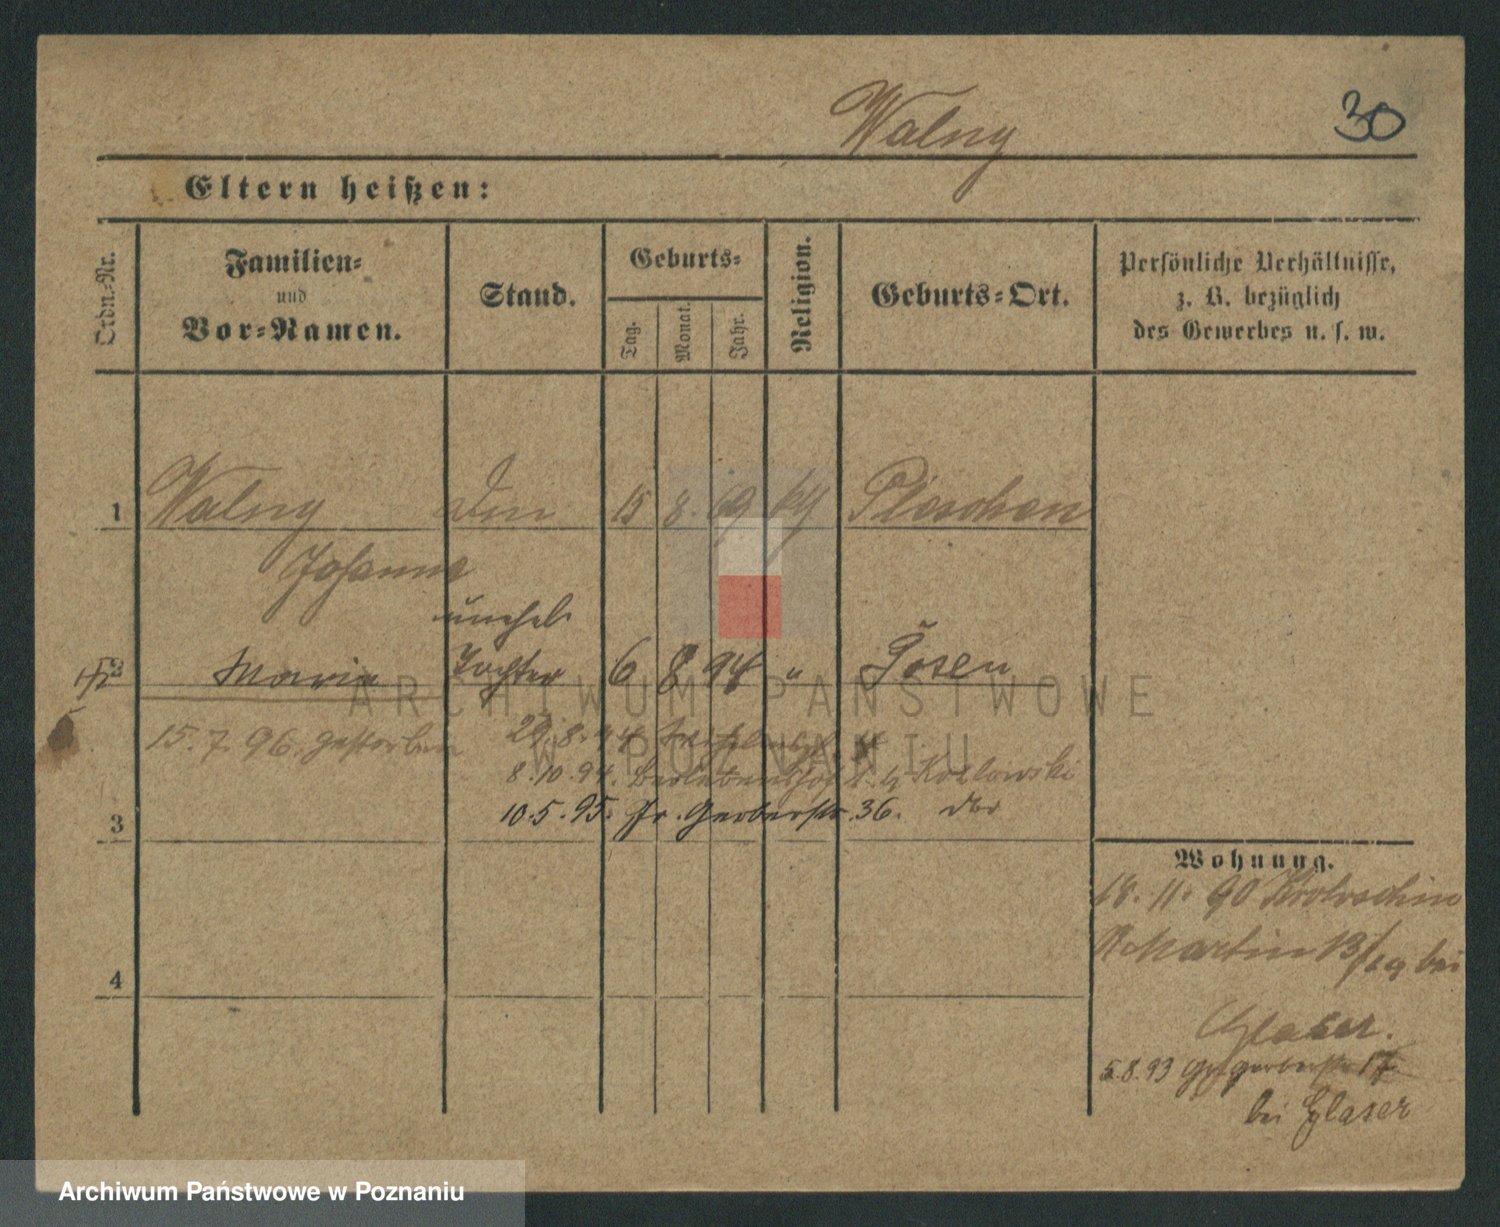 Walny
30
Eltern heißen:
Ordn.-Nr.
Familien-
und
Vor-Namen.
Stand.
Geburts-
Tag.
Monat.
Jahr.
Religion.
Geburts-Ort.
Persönliche Verhältnisse,
z. B. bezüglich
des Gewerbes u. s. w.
1 Walny 15 8. 69 Pleschen
Johanna
unehel
2 Maria Tochter 6 8 94 " Posen
15. 7. 96. gestorben 29. 8. 94
8. 10. 94. Kozlowski
10. 5. 95. Gr. Gerberstr. 36.
3
Wohnung.
18. 11. 90 Krotoschin
Martin 13/ bei
4
Glaser.
5. 8. 93 Gr. Gerberstr 17
bei Glaser
ARCHIWUM PAŃSTWOWE
W POZNANIU
Archiwum Państwowe w Poznaniu